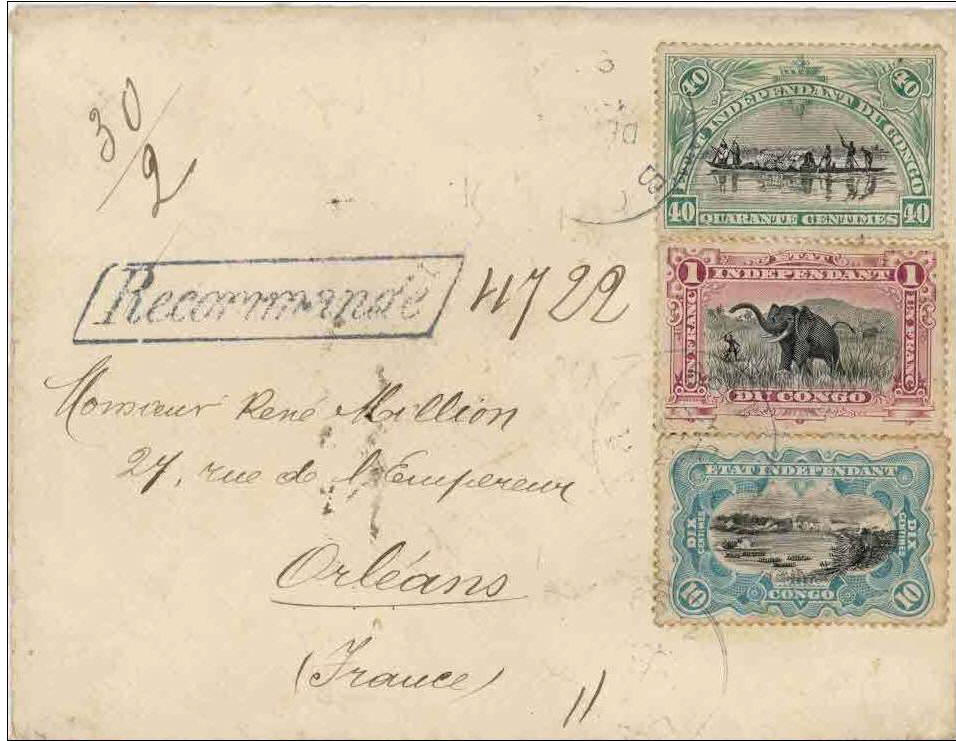 30/2
Recommandé 4722
Monsieur René Million
27, rue de l'Empereur
Orléans
(France)
11
40 40
ETAT INDEPENDANT DU CONGO
40 QUARANTE CENTIMES 40
1 ETAT 1
INDEPENDANT
UN FRANC UN FRANC
DU CONGO
ETAT INDEPENDANT
DIX CENTIMES DIX CENTIMES
10 CONGO 10